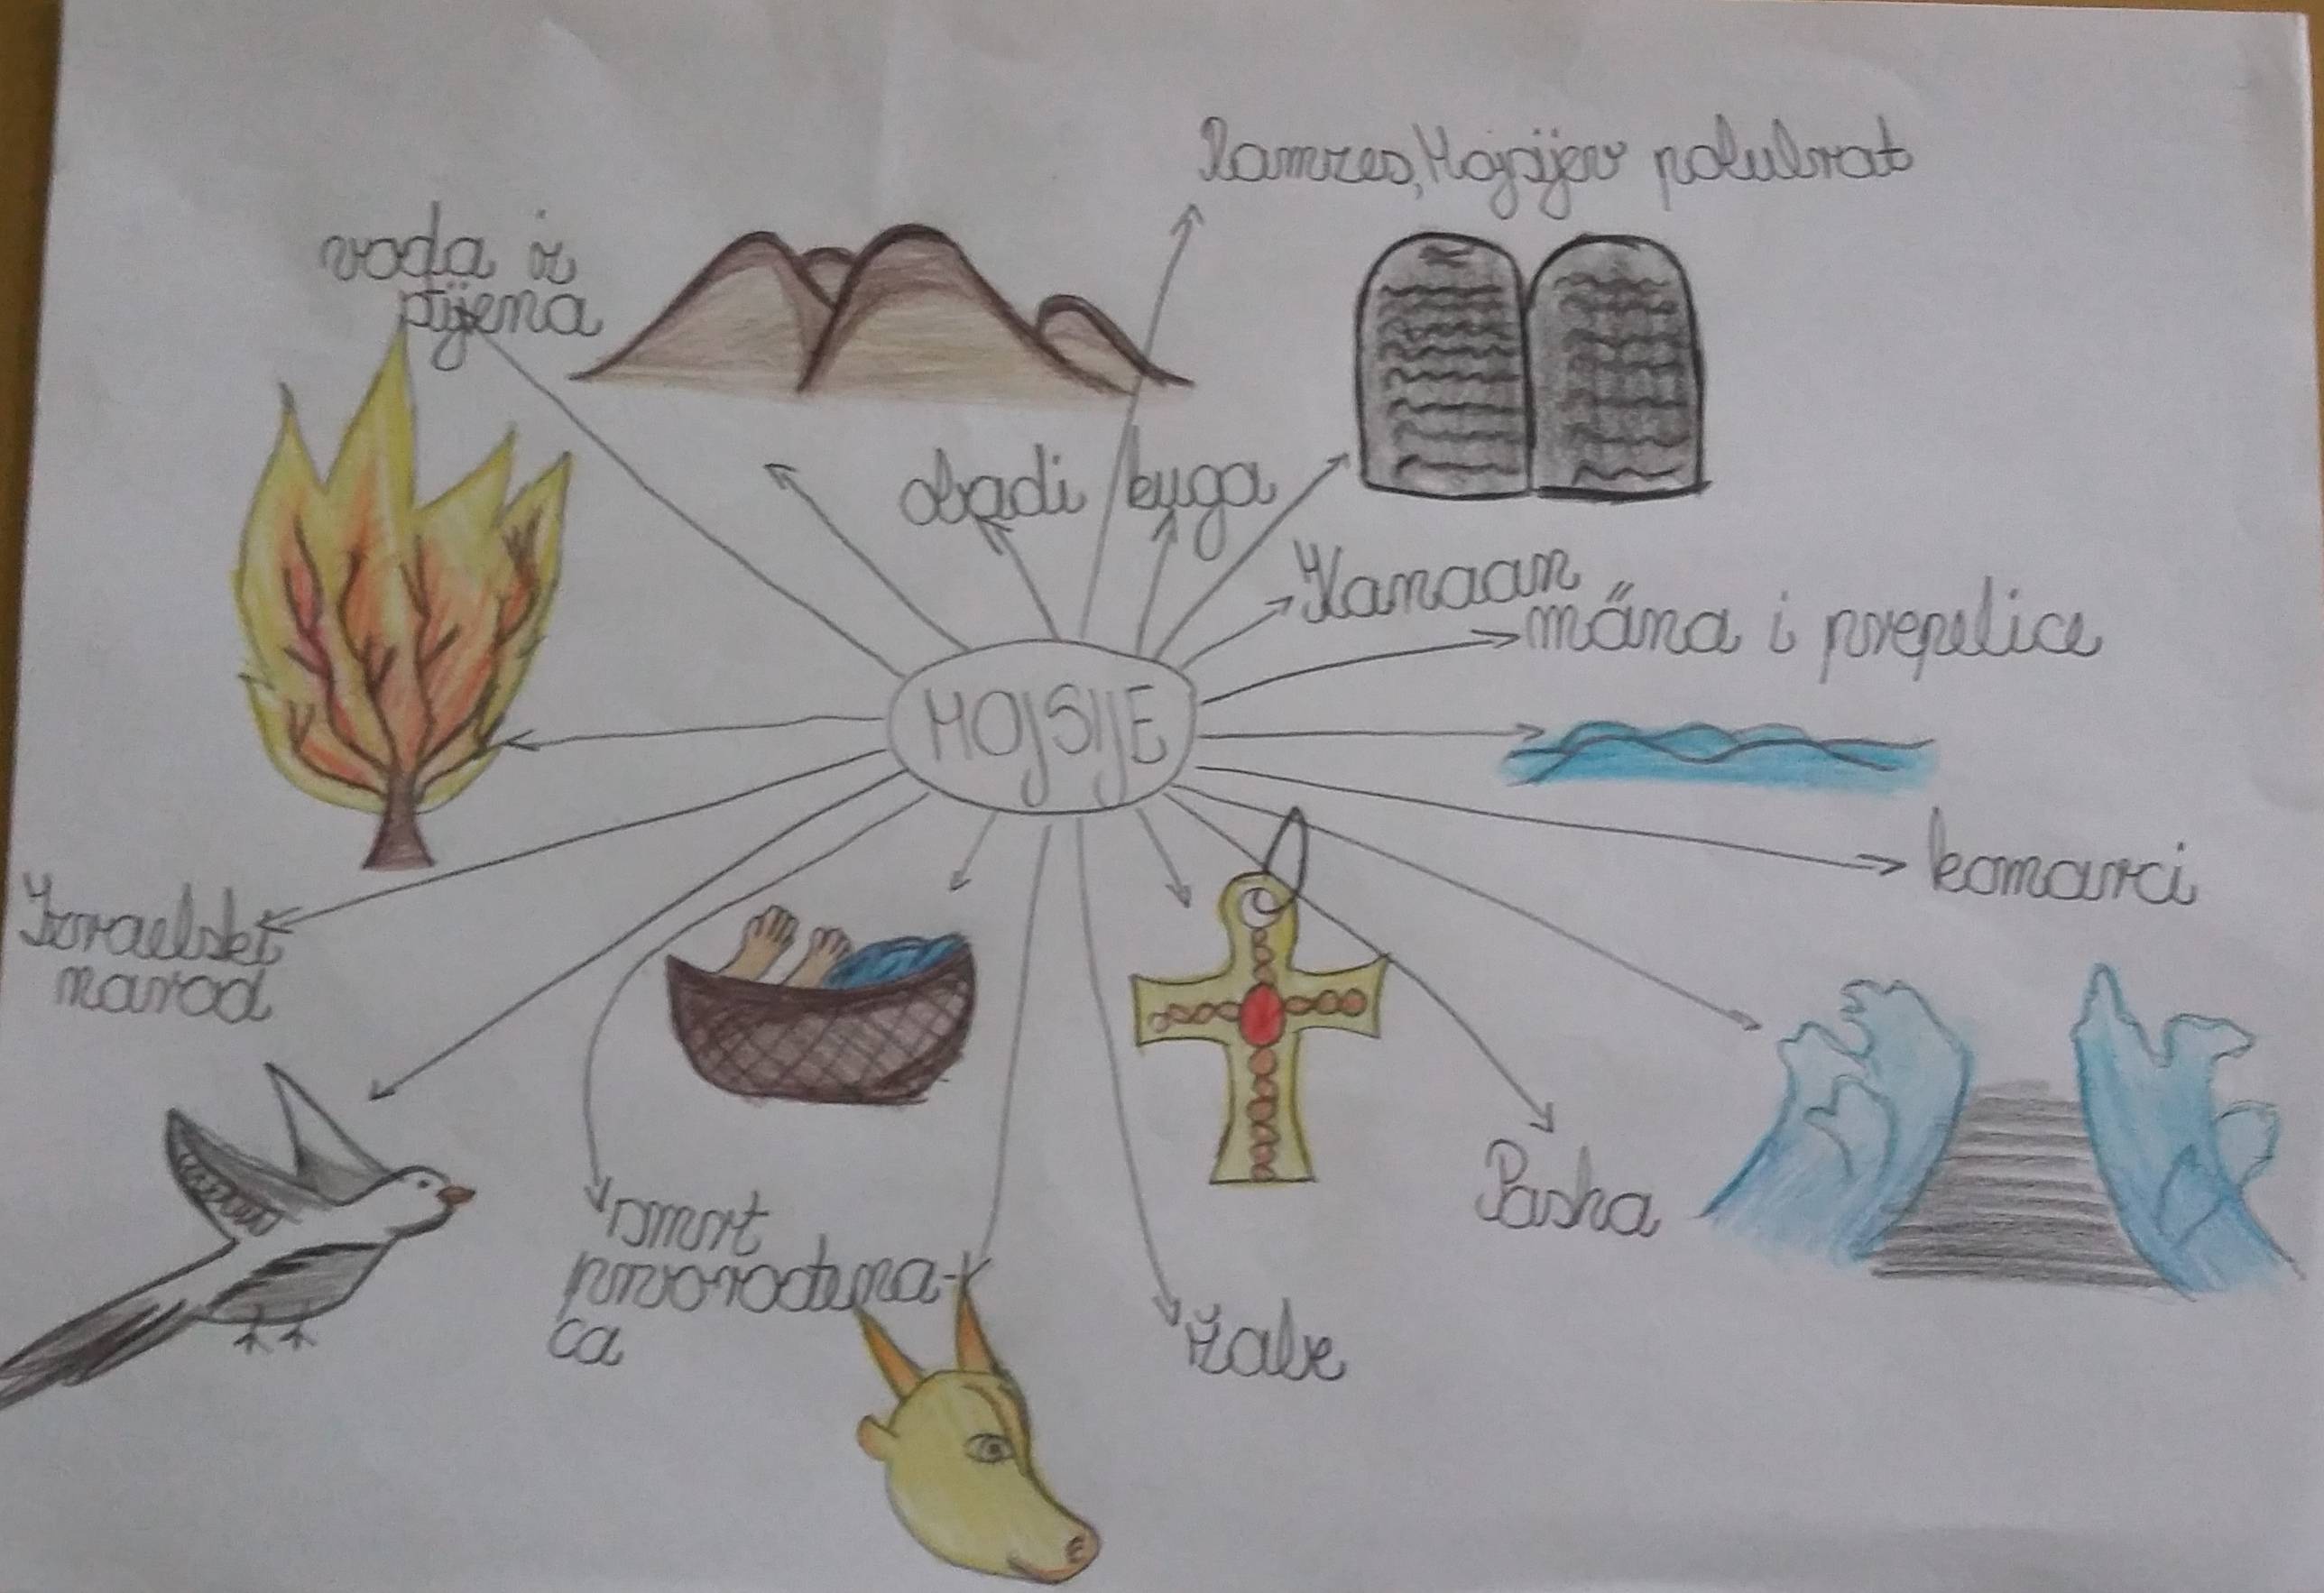 Ramzes, Mojsijev polubrat
voda iz
stijena
obadi
kuga
Kanaan
māna i prepelice
MOJSIJE
komarci
Izraelski
narod
Pasha
smrt
prvorođena-
ca
žabe